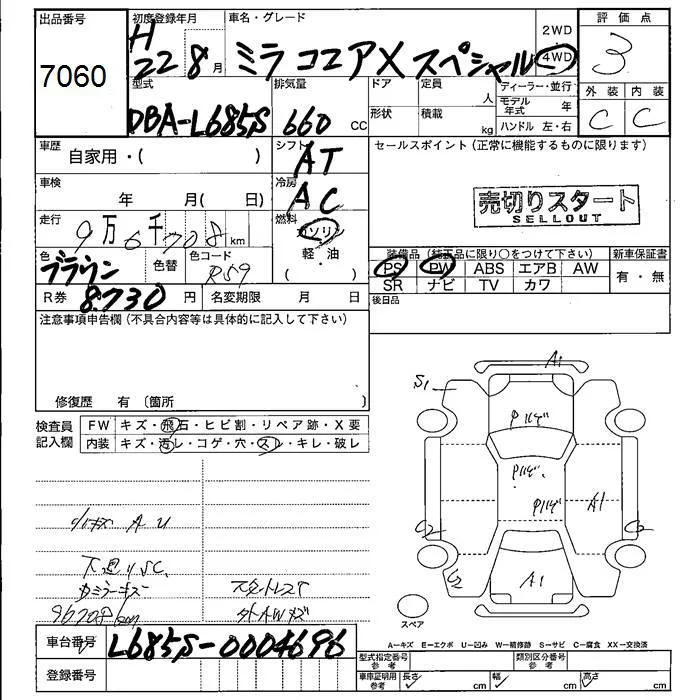 出品番号
7060
初度登録年月
H
22 8月
車名・グレード
ミラ ココアX スペシャル
2WD
4WD
評価点
3
外装 内装
C C
型式
DBA-L685S
排気量
660 CC
ドア
形状
定員
人
積載
kg
ディーラー・並行
モデル年式 年
ハンドル 左・右
車歴
自家用・( )
シフト
AT
セールスポイント(正常に機能するものに限ります)
車検
年 月( 日)
冷房
AC
売切りスタート
SELLOUT
走行
9万6千708km
燃料
ガソリン
軽・油
( )
色
ブラウン
色替
色コード
R59
装備品(純正品に限り○をつけて下さい)
PS PW ABS エアB AW
SR ナビ TV カワ
新車保証書
有・無
R券 8.730円
名変期限 月 日
後日品
注意事項申告欄(不具合内容等は具体的に記入して下さい)
修復歴 有〔箇所 〕
検査員
記入欄
FW キズ・飛石・ヒビ割・リペア跡・X要
内装 キズ・汚レ・コゲ・穴・スレ・キレ・破レ
小キズ A U
下廻りSC
96708km
車台番号 L685S-0004696
登録番号
A1
S1
A1
C2
C2
A1
スペア
A─キズ E─エクボ U─凹み W─補修跡 S─サビ C─腐食 XX─交換済
型式指定番号
参考
類別区分番号
参考
車庫証明用
参考
長さ cm
幅 cm
高さ cm